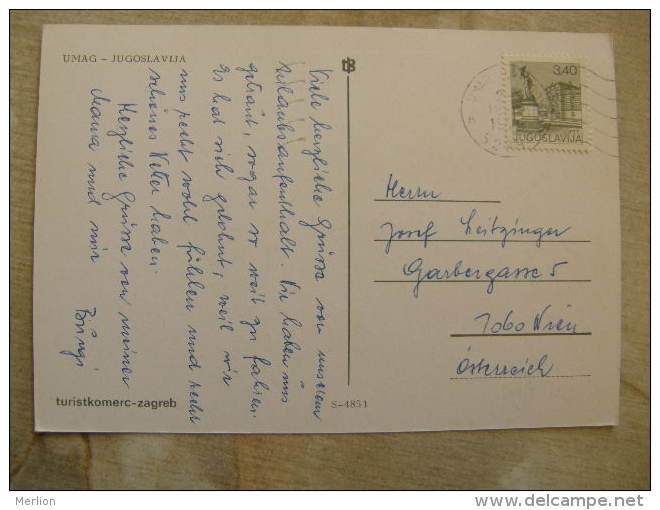 UMAG – JUGOSLAVIJA
Viele herzliche Grüsse von unserem
Urlaubsaufenthalt. Wir haben uns
getraut, sogar so weit zu fahren.
Es hat sich gelohnt, weil wir
uns recht wohl fühlen und recht
schönes Wetter haben.
Herzliche Grüsse von meiner
Mama und mir
turistkomerc-zagreb
S-4851
3,40
JUGOSLAVIJA
Herrn
Josef Leitzinger
Garbergasse 5
1060 Wien
Österreich
Merlion
delcampe.net